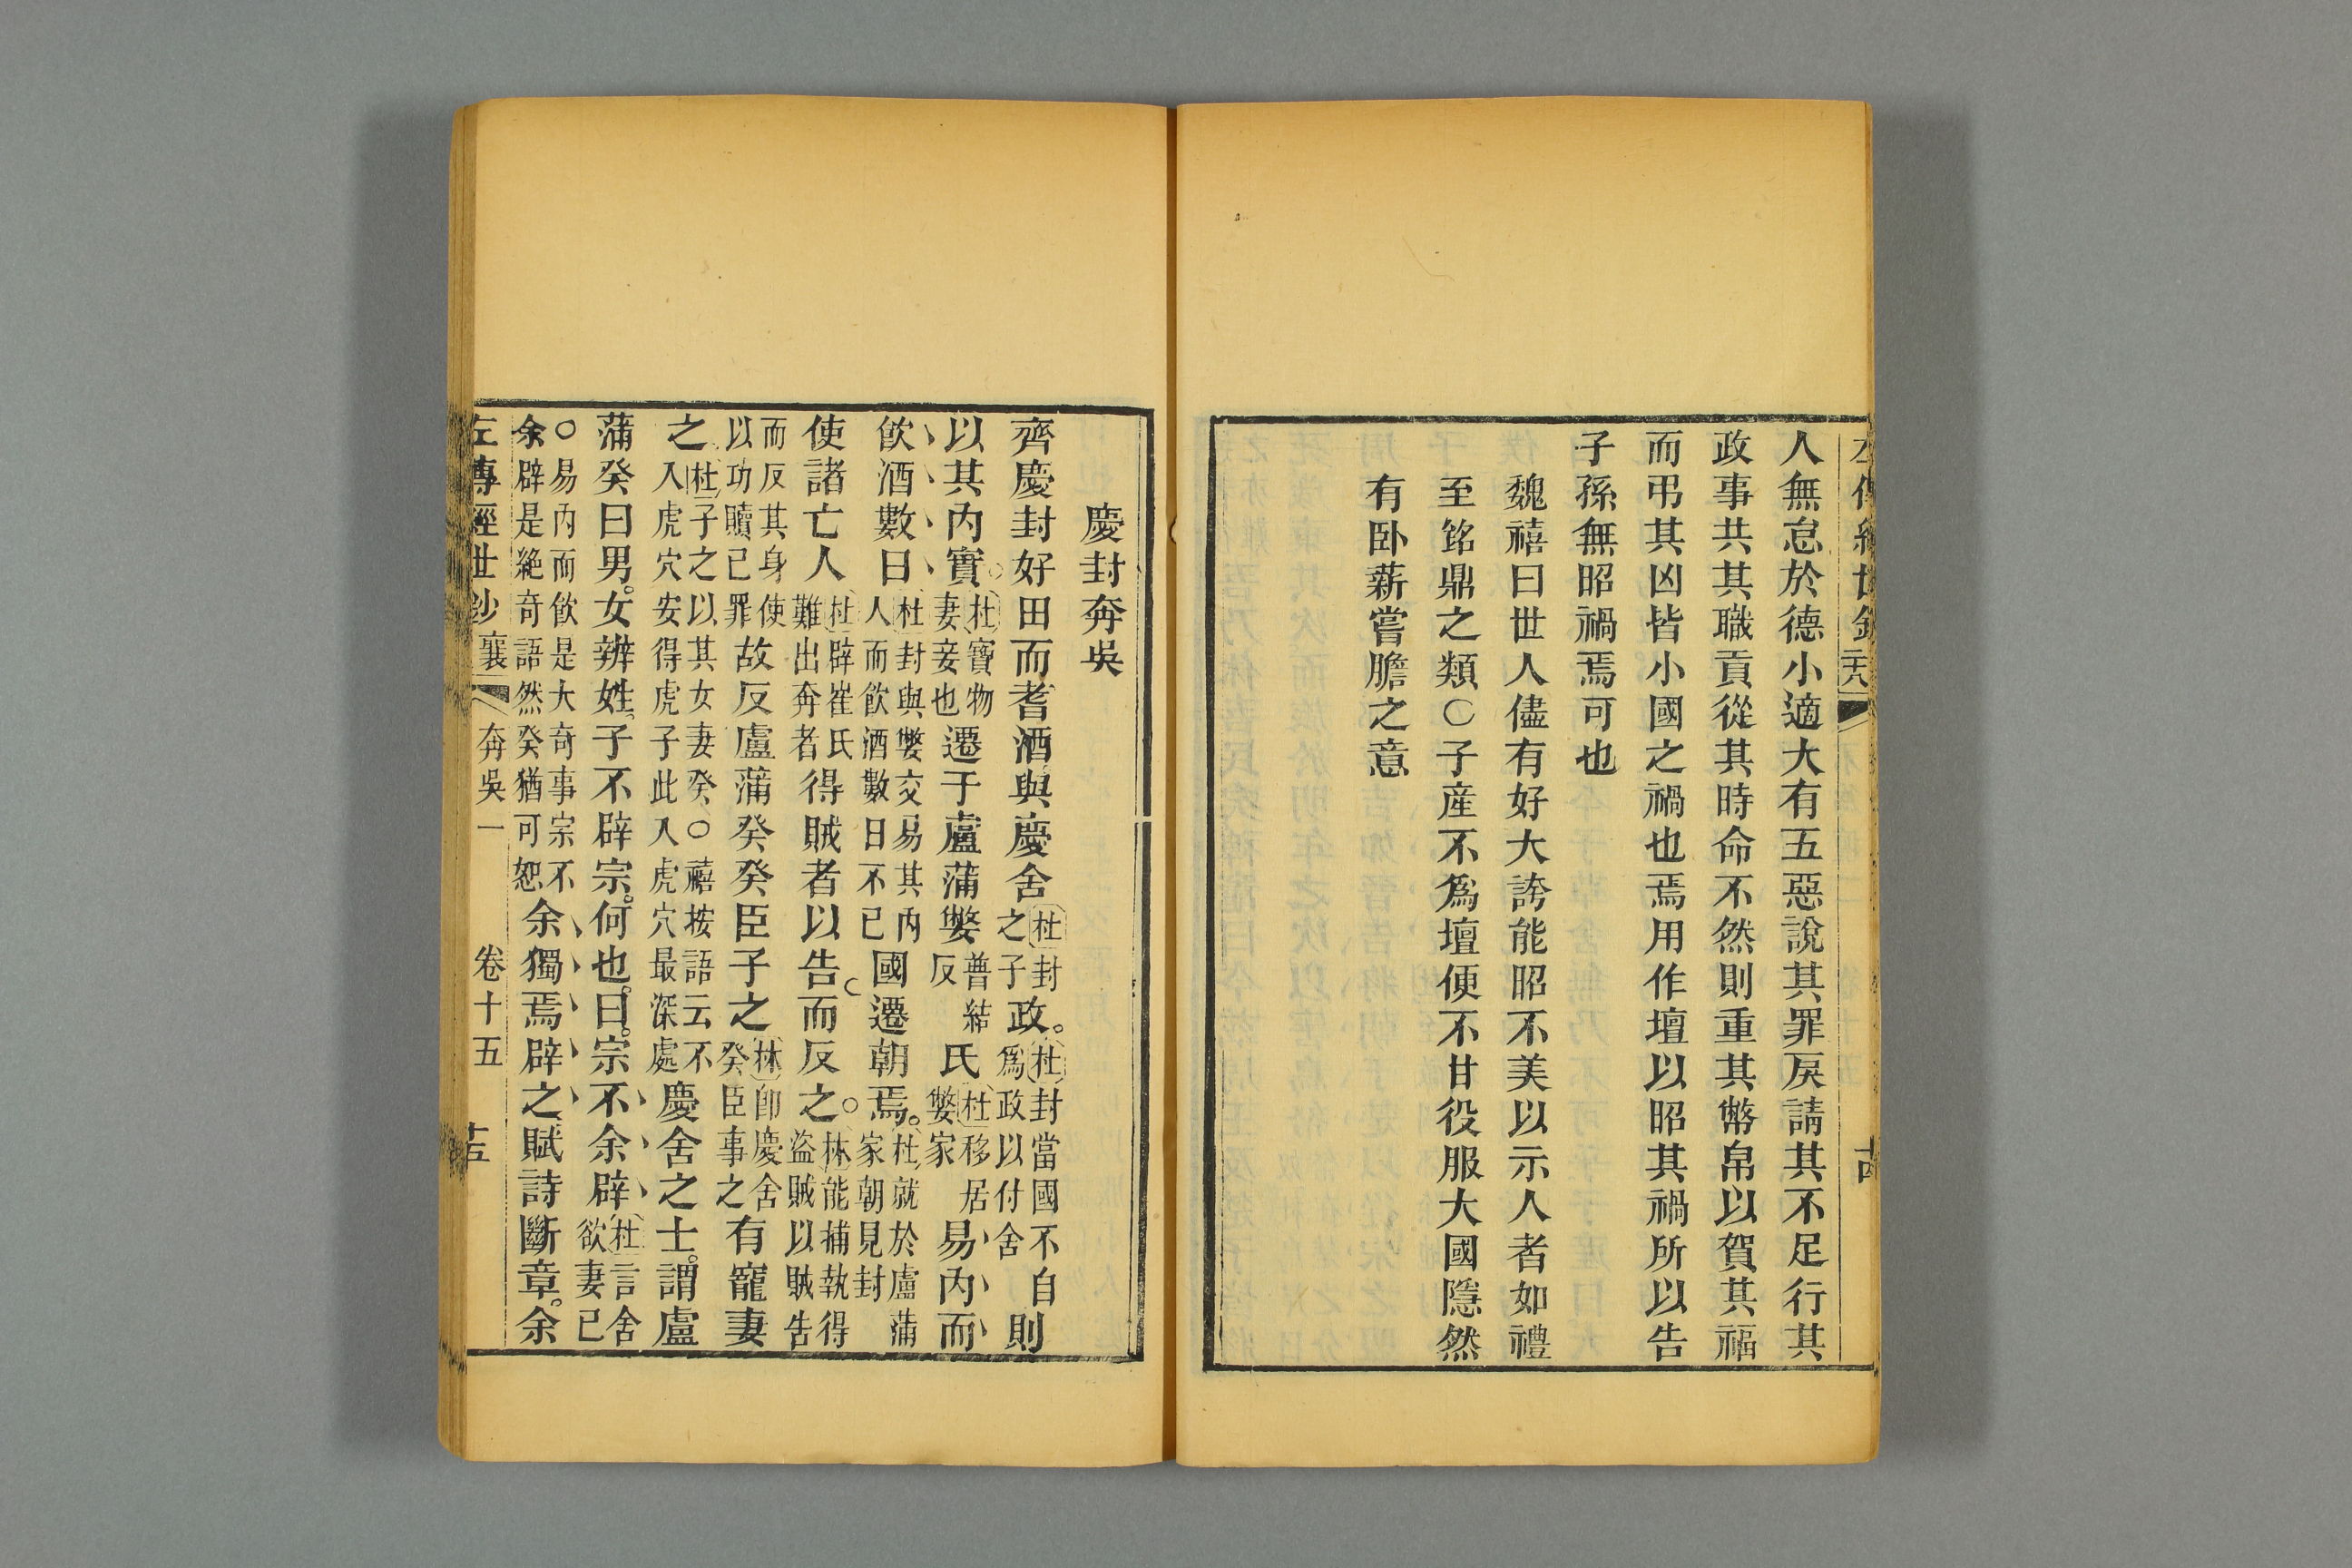 左傳經世鈔 二十八 十四
人無怠於德小適大有五惡說其罪戾請其不足行其
政事共其職貢從其時命不然則重其幣帛以賀其福
而弔其凶皆小國之禍也焉用作壇以昭其禍所以告
子孫無昭禍焉可也
魏禧曰世人儘有好大誇能昭不美以示人者如禮
至銘鼎之類○子產不爲壇便不甘役服大國隱然
有卧薪嘗膽之意
慶封奔吳
齊慶封好田而耆酒與慶舍杜封之子政。杜封當國不自爲政以付舍則
以其內實。杜寶物妻妾也遷于盧蒲嫳普結反氏杜移居嫳家易內而
飲酒數日杜封與嫳交易其內人而飲酒數日不已國遷朝焉。杜就於盧蒲家朝見封
使諸亡人杜辟崔氏難出奔者得賊者以告而反之。林能捕執得盜賊以賊告
而反其身使以功贖已罪故反盧蒲癸癸臣子之林卽慶舍癸臣事之有寵妻
之杜子之以其女妻癸○禧按語云不入虎穴安得虎子此入虎穴最深處慶舍之士。謂盧
蒲癸曰男。女辨姓。子不辟宗。何也。曰。宗不余辟杜言舍欲妻已
○易內而飲是大奇事宗不余辟是絶奇語然癸猶可恕余獨焉辟之賦詩斷章。余
左傳經世鈔 襄 奔吳一 卷十五 十五